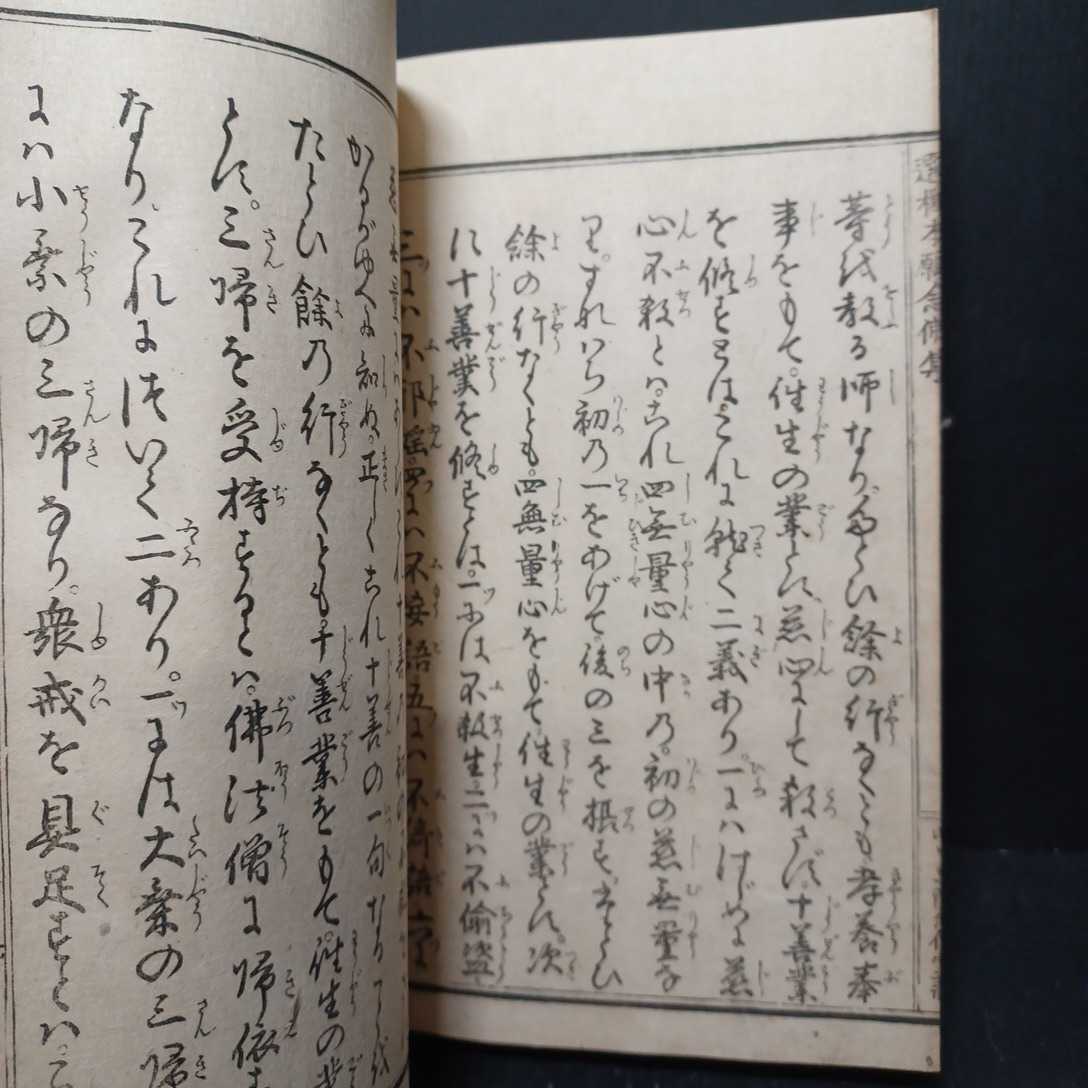 選擇本願念佛集
等を教る師なり。たとひ餘の行なくとも孝養奉
事をもて。往生の業とす。慈心にして殺さず。十善業
を修すとは。これに就て二義あり。一にハはじめに慈
心不殺とハ。これ四無量心の中の。初の慈無量な
り。すなハち初の一をあげて。後の三を摂す。たとひ
餘の行なくとも。四無量心をもて。往生の業とす。次
に十善業を修すとは。一には不殺生二にハ不偸盗
三にハ不邪婬四にハ不妄語五にハ不綺語六に
かるがゆへに知ぬ。正しくこれ十善の一句なり
たとひ餘の行なくとも。十善業をもて。往生の業
とす。三帰を受持するとハ。佛法僧に帰依す
なり。これについて二あり。一には大乗の三帰
にハ小乗の三帰なり。衆戒を具足するとハ。こ